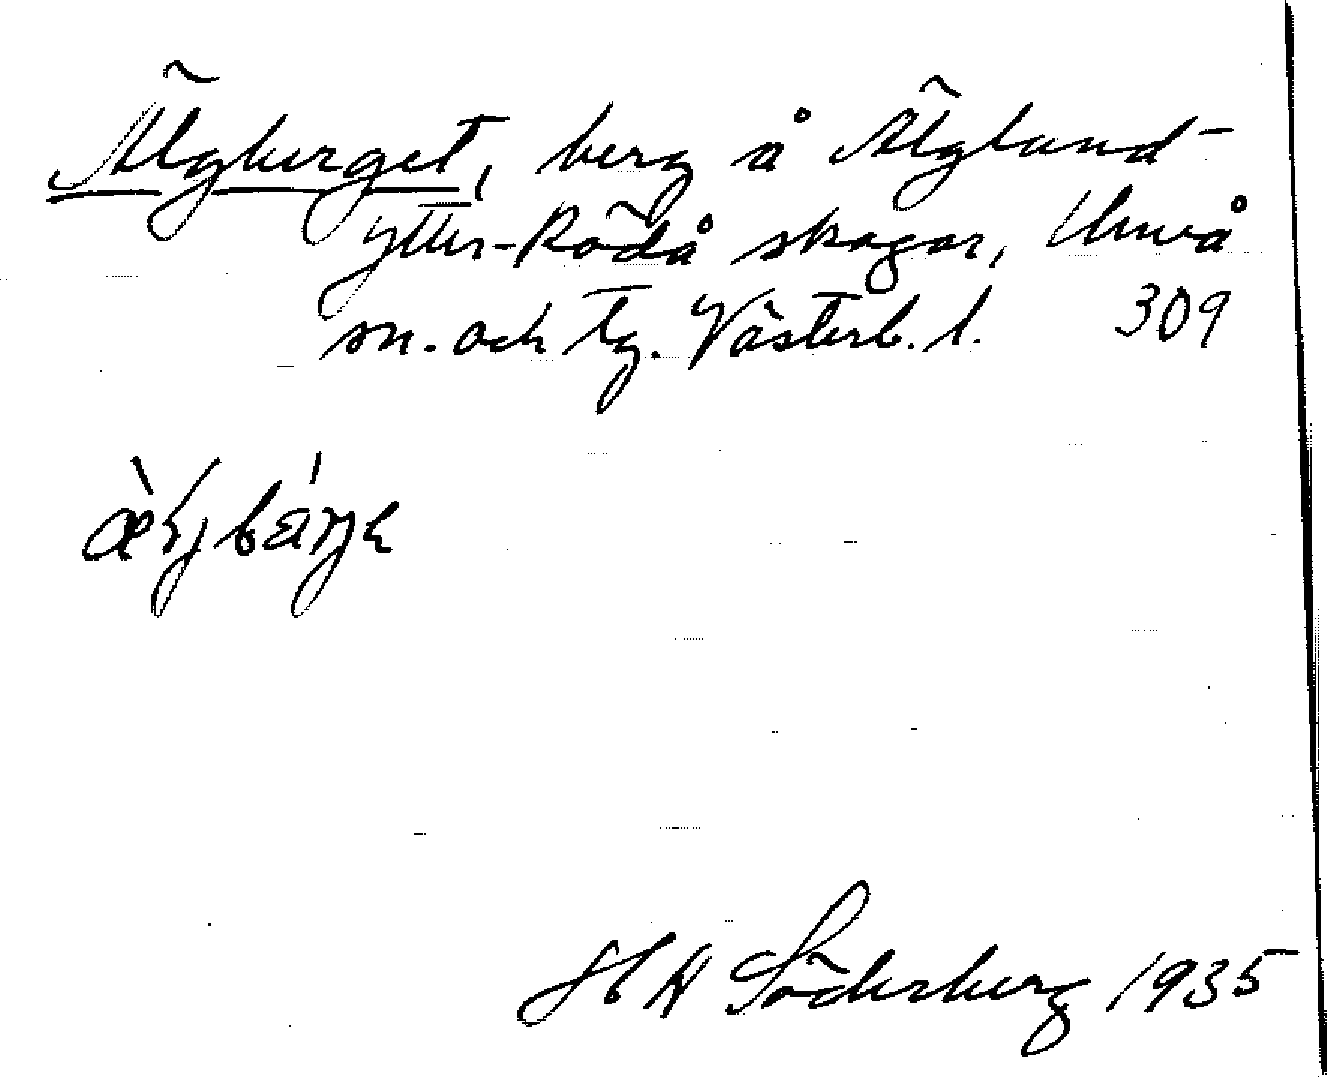 Älgberget, berg å Älgland-
Ytter-Rödå skogar, Umeå
sn. och tg. Västerb. l. 309
H A Söderberg 1935